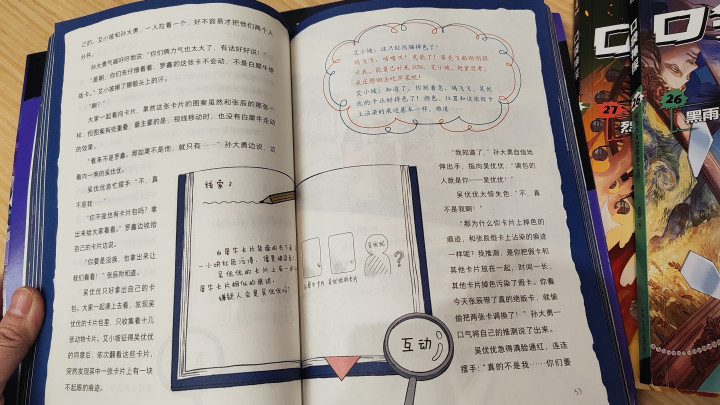 己的。艾小坡和孙大勇，一人拉着一个，好不容易才把他们两个人
分开。
孙大勇气喘吁吁地说："你们俩力气也太大了，有话好好说！"
"是啊，你们先仔细看看，罗鑫的这张卡不会动，不是白犀牛绝
版卡。"艾小坡擦了擦额头上的汗。
"啊？"
大家一起看向卡片，果然这张卡片的图案虽然和张辰的那张一
样，但图案有些重叠，最主要的是，视线移动时，也没有白犀牛走动
的效果。
"看来不是罗鑫，那如果不是他，就只有……"孙大勇边说，边
看向一旁的吴优优。
吴优优急忙摆手："不，真
不是我……"
"你不是也有卡片包吗？拿
出来给大家看看。"罗鑫边收拾
自己的卡片边说。
"你要是没换，也拿出来让
我们看看！"张辰附和道。
吴优优只好拿出自己的卡
包。大家一起凑上去看，发现吴
优优的卡片包里，只收集着十几
张动物卡片。艾小坡征得吴优优
的同意后，依次翻看这些卡片，
突然发现其中一张卡片上有一块
不起眼的痕迹。
艾小坡：这只红熊猫掉色了！
线索2
白犀牛卡片背面的右下
一小块红色污渍，
吴优优的卡片上有一
犀牛卡片相似的痕迹。
嫌疑人会是吴优优吗？
白犀牛卡片
吴优优的卡片
吴优优
？
互动
"我知道了。"孙大勇自信地
伸出手，指向吴优优，"调包的
人就是你——吴优优！"
吴优优大惊失色："不，真
不是我啊！"
"那为什么你卡片上掉色的
痕迹，和张辰假卡上沾染的痕迹
一样呢？我推测，是你把假卡和
其他卡片放在一起，时间一长，
其他卡片掉色污染了假卡。你看
今天张辰带了真的绝版卡，就偷
偷把两张卡调换了！"孙大勇一
口气将自己的推测说了出来。
吴优优急得满脸通红，连连
摆手："真的不是我……你们要
53
27
烈
26
黑雨